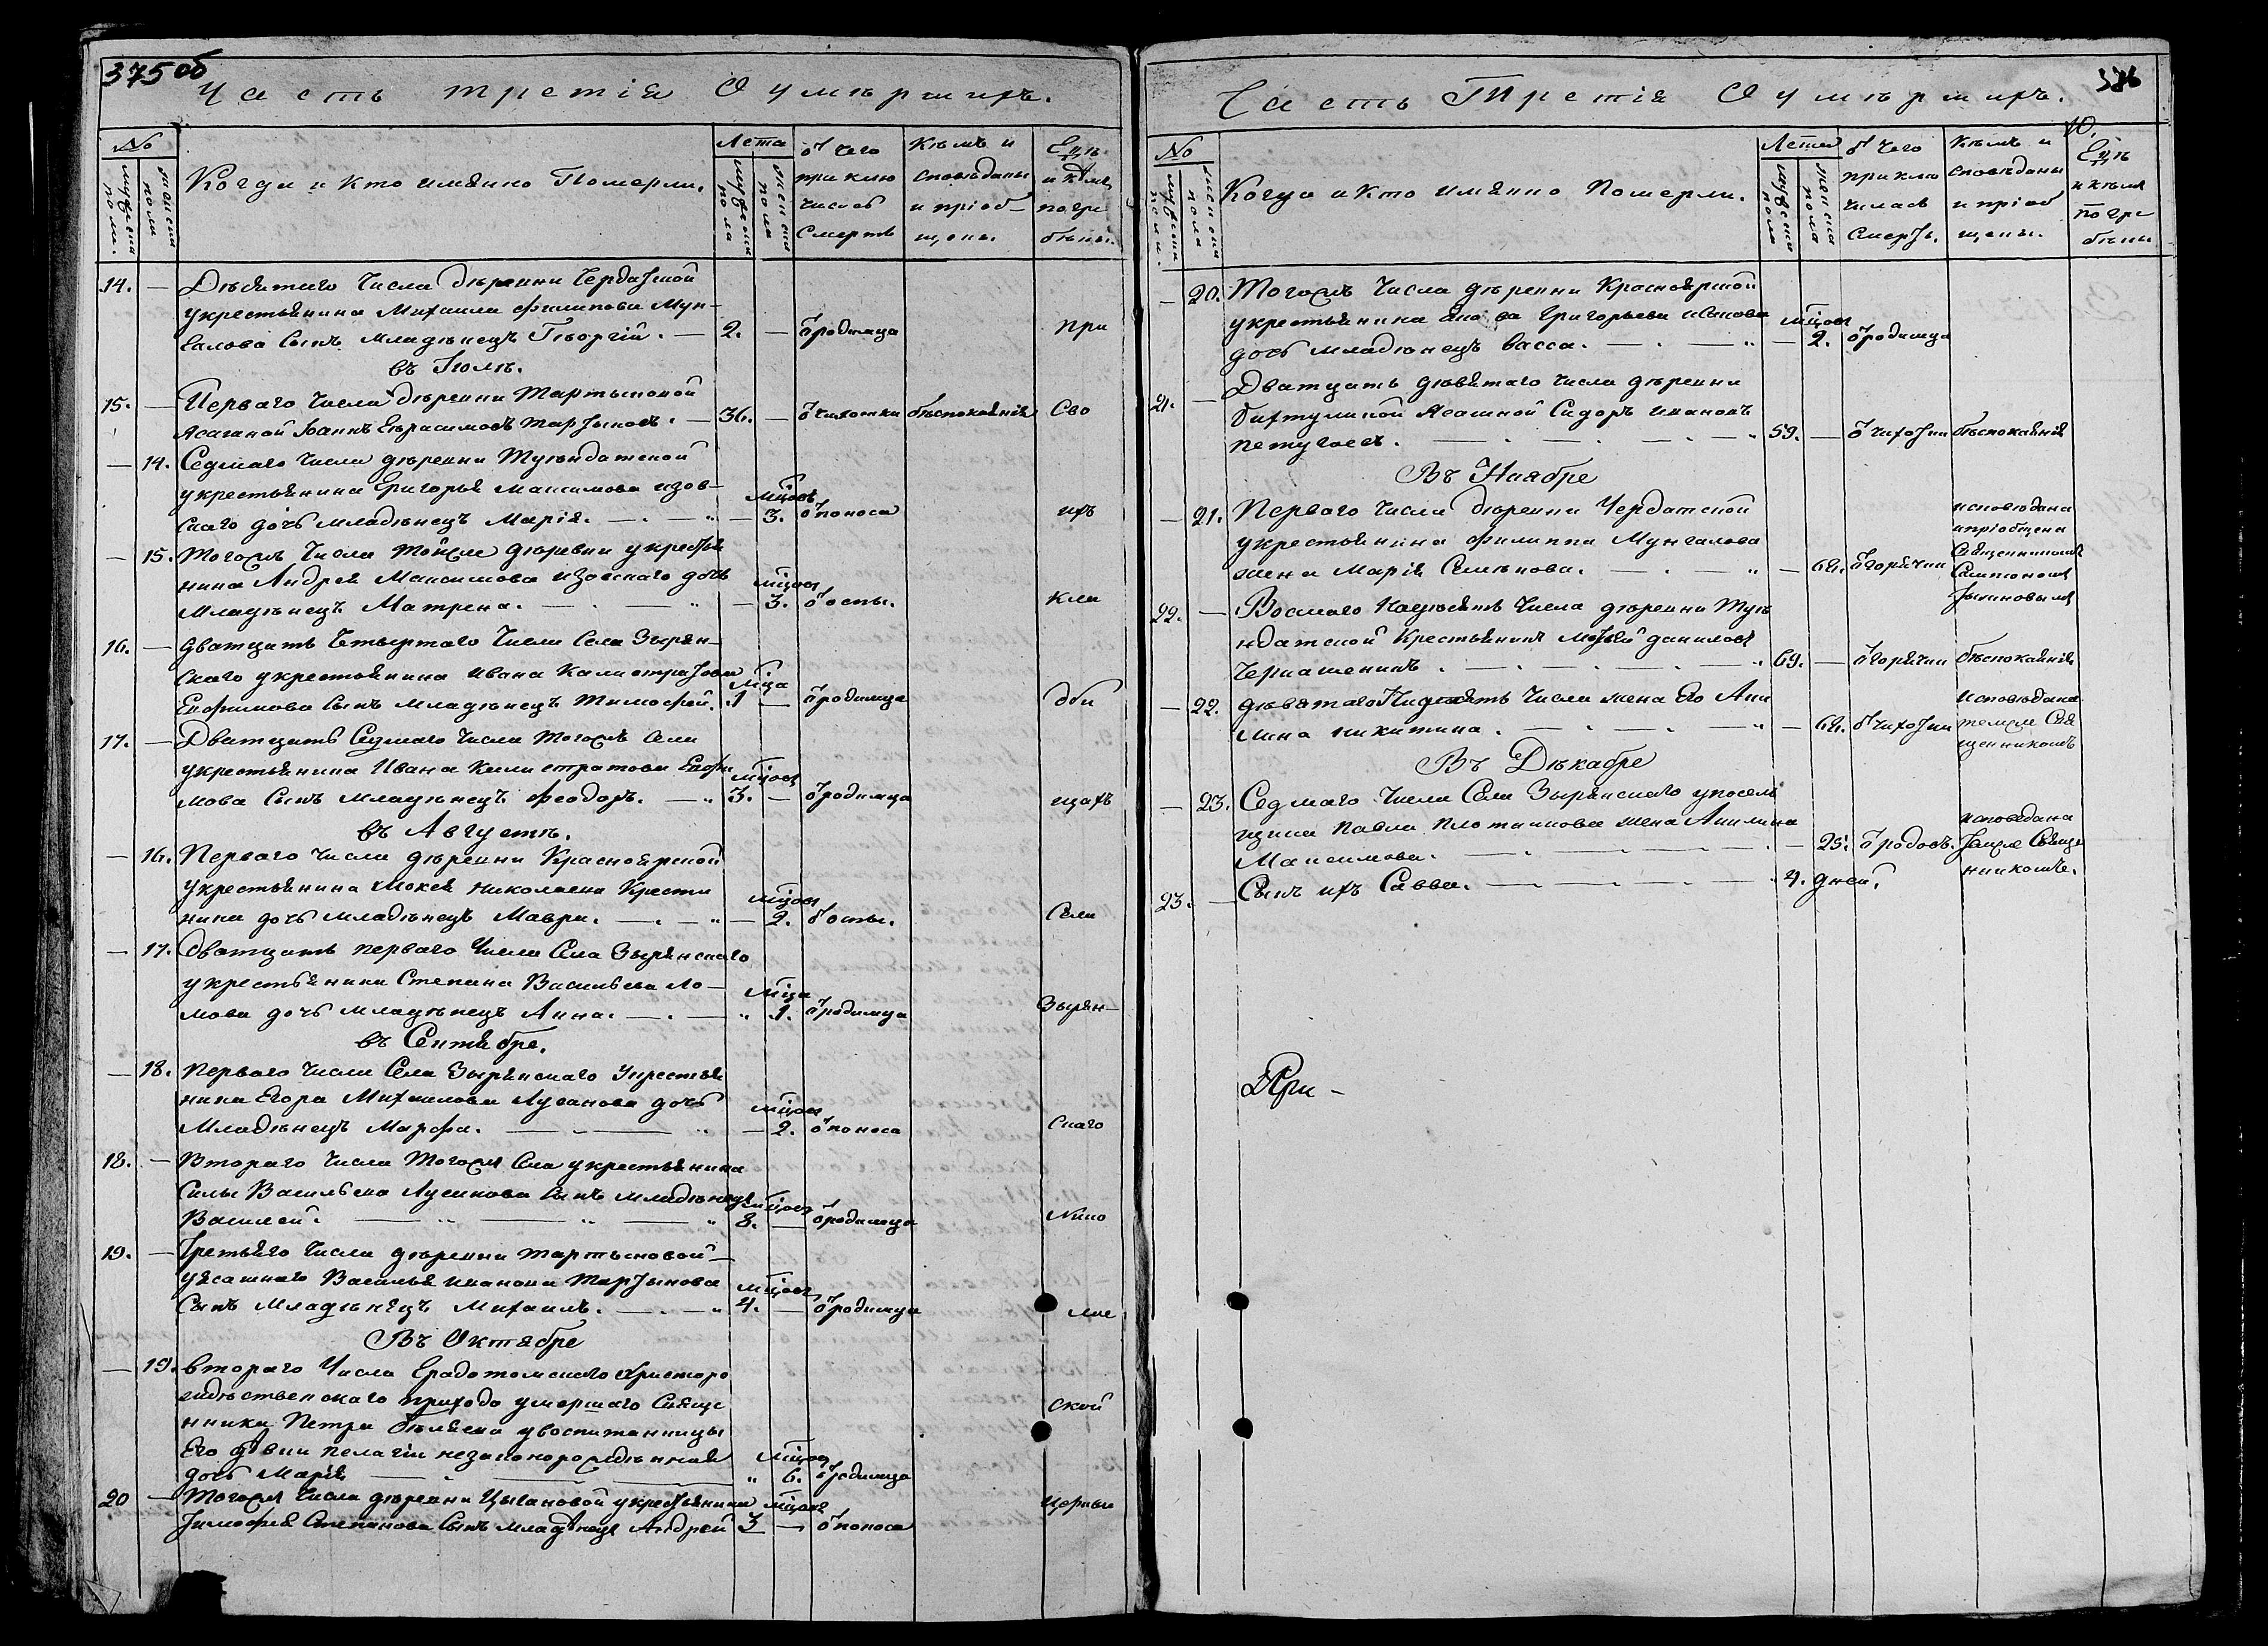 375 об
Часть третія О умѣршихъ.
№ Лета
мужеска пола.
женска пола
Когда и кто имянно Померли.
мужеска пола
женска пола
Ѿ чего приклю чилась смерть
Кѣмъ и сповѣданы и пріоб- щены.
Гдѣ и кѣмъ погре бѣны.
14. — Дѣвятаго числа дѣревни Чердатской
укрестьянина Михаила Филипова Мун-
галова сынъ младѣнецъ Георгій. — 2. — Ѿродимца При
въ Іюлѣ.
15. — Перваго числа дѣревни Тартыновой
Ясашной Іоаннъ Герасимовъ Тартыновъ. — 36. — Ѿчихотки бѣспокаянія Сво
— 14. Седмаго числа дѣревни Тугѣндатской
укрестьянина Григорья Максимова изов-
скаго дочь младѣнецъ Марія. — — мѣцовъ 3. Ѿпоноса ихъ
— 15. Тогожъ числа тойже дѣревни укрестья
нина Андрея Максимова изовскаго дочь
младѣнецъ Матрена. — — мѣцовъ 3. Ѿоспы. кла
16. — Дватцать четвертаго числа села Зырян-
скаго укрестьянина Ивана Калистратова
Ефимова сынъ младѣнецъ Тимофей. мѣца 1 — Ѿродимца дби
17. — Дватцать седмаго числа тогожъ села
укрестьянина Ивана Калистратова Ефи
мова сынъ младѣнецъ Феодоръ. — мѣцовъ 3. — Ѿродимца щахъ
въ Августѣ.
— 16. Перваго числа дѣревни Красноярской
укрестьянина Мокея Николаева Крести
нина дочь младѣнецъ Мавра. — — мѣцовъ 2. Ѿоспы. Села
— 17. Дватцать перваго числа села Зырянскаго
укрестьянина Степана Васильева Ло-
мова дочь младѣнецъ Анна. — мѣца 1. Ѿродимца Зырян-
въ Сентябре.
— 18. Перваго числа села Зырянскаго укрестья
нина Егора Михаилова Лусанова дочь
младѣнецъ Марфа. — — мѣцовъ 2. Ѿпоноса скаго
18. — Втораго числа тогожъ села укрестьянина
Силы Васильева Лусанова сынъ младѣнецъ
Василей. — — мѣцовъ 8. — Ѿродимца Нико
19. — Третьяго числа дѣревни Тартыновой
уясашнаго Василья Иванова Тартынова
сынъ младѣнецъ Михаилъ. — мѣцовъ 4. — Ѿродимца лае
Въ Октябре
— 19. втораго числа Градотомскаго Христоро
ждѣственскаго прихода умершаго свяще
нника Петра Бѣляева увоспитанницы
его дѣвки Пелагіи незаконорождѣнная
дочь Марія — мѣцовъ 6. Ѿродимца ской
20 — Тогожъ числа дѣревни Цыгановой укрестьянина
Тимофея Степанова сынъ младѣнецъ Андрей мѣцовъ 3 — Ѿпоноса церквы
376
Часть Третія О умѣршихъ.
10.
№ Лета
мужеска пола.
женска пола
Когда и кто имянно померли.
мужеска пола
женска пола
Ѿ чего приклю чилась смерть.
Кѣмъ и сповѣданы и пріоб щены.
Гдѣ и кѣмъ погре бѣны
— 20. Тогожъ числа дѣревни Красноярской
укрестьянина Якова Григорьева Иванова
дочь младѣнецъ Васса. — — мѣцовъ 2. Ѿродимца
21. — Дватцать дѣвятаго числа дѣревни
Бихтулиной Ясашной Сидоръ Ивановъ
Петугаевъ. — — 59. — Ѿчихотки бѣспокаянія
Въ Ноябре
— 21. Перваго числа дѣревни Чердатской
укрестьянина Филиппа Мунгалова
жена Марія Семѣнова. — — 62. Ѿгорячки исповѣдана
ипріобщена
священникомъ
Симеономъ
Тыжновымъ
22. — Восмаго Надѣсять числа дѣревни Тугѣ
ндатской Крестьянинъ Матвѣй Даниловъ
Чернашенинъ. — — 69. — Ѿгорячки бѣспокаянія
— 22. дѣвятаго Надѣсять числа жена его Аки
лина Никитина. — — 62. Ѿчихотки Исповѣдана
темже свя
щенникомъ
Въ Дѣкабре
— 23. Седмаго числа села Зырянскаго упосель
щика Павла Плотникова жена Акилина
Максимова. — — 25. Ѿродовъ. исповѣдана
темже свяще
нникомъ.
23. — Сынъ ихъ Савва. — — 4. дней.
При -